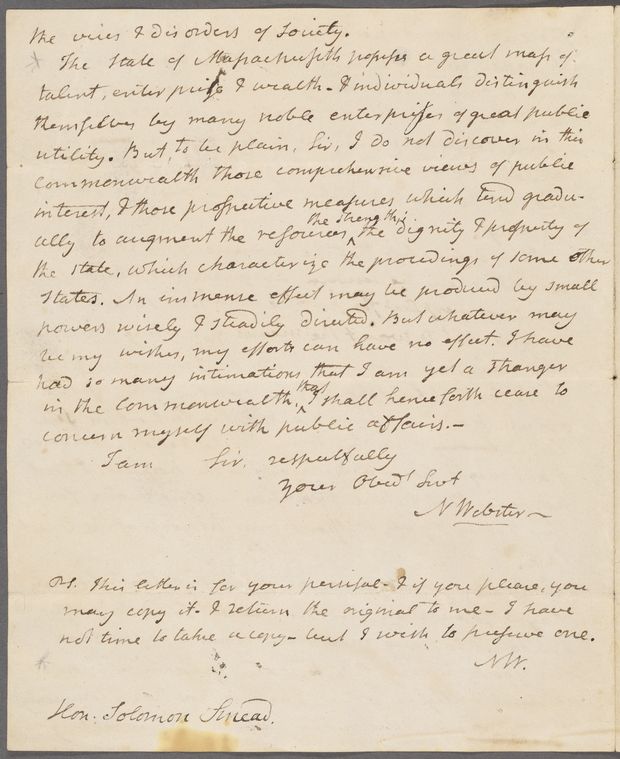 the vices & disorders of Society.
The State of Massachusetts possesses a great mass of
talent, enterprise & wealth - & individuals distinguish
themselves by many noble enterprises of great public
utility. But, to be plain, Sir, I do not discover in this
Commonwealth those comprehensive views of public
interest, & those prospective measures which tend gradu-
ally to augment the resources, the strength, the dignity & property of
the state, which characterize the proceedings of some other
States. An immense effect may be produced by small
powers wisely & steadily directed. But whatever may
be my wishes, my efforts can have no effect. I have
had so many intimations that I am yet a stranger
in the Commonwealth, that I shall henceforth cease to
concern myself with public affairs. -
I am Sir, respectfully
your Obedt Servt
N Webster -
P.S. This letter is for your perusal - & if you please, you
may copy it - & return the original to me - I have
not time to take a copy - but I wish to preserve one.
NW.
Hon. Solomon Smead.